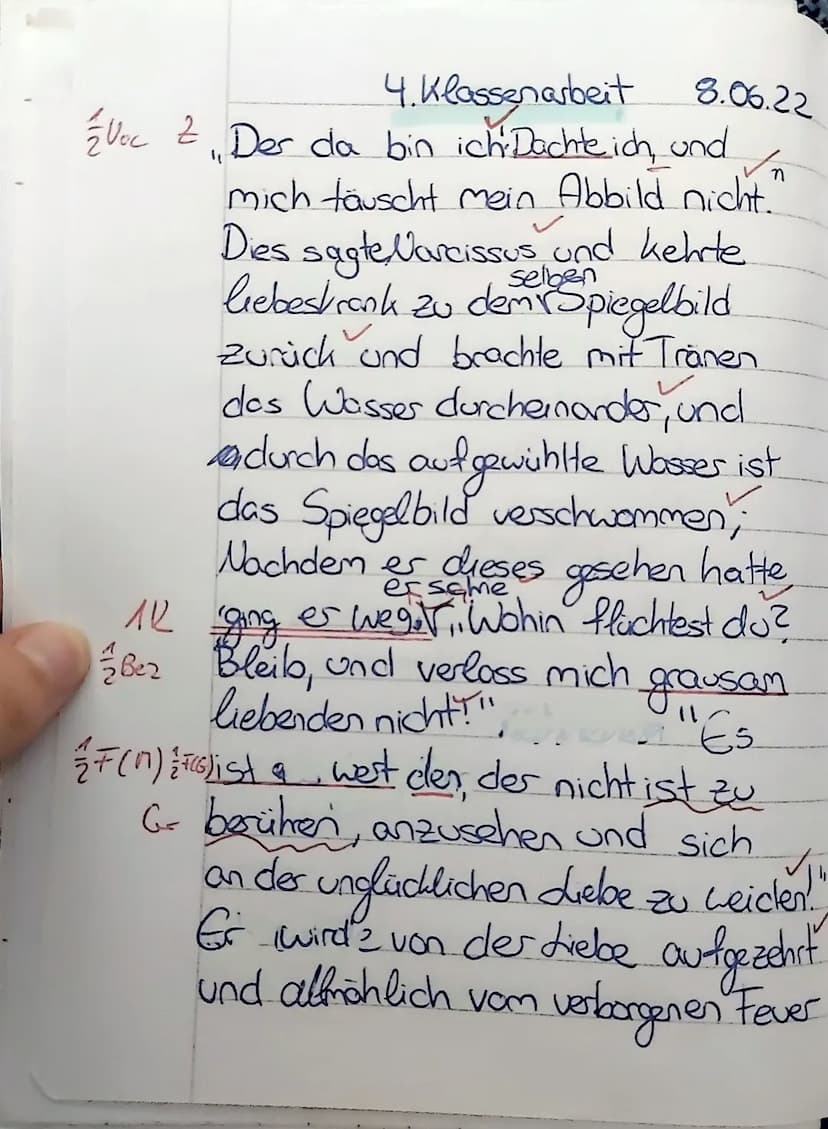 4. Klassenarbeit 8.06.22
½Voc Z „Der da bin ich." Dachte ich, und
mich täuscht mein Abbild nicht."
Dies sagte Narcissus und kehrte
selben
liebeskrank zu dem Spiegelbild
zurück und brachte mit Tränen
das Wasser durcheinander, und
durch das aufgewühlte Wasser ist
das Spiegelbild verschwommen;
Nachdem er dieses gesehen hatte
er schrie
1K ging er weg. „Wohin flüchtest du?
½Bez Bleib, und verlass mich grausam
liebenden nicht!"
"Es
½F(n) ½F(G) ist wert den, der nicht ist zu
G- berühren, anzusehen und sich
an der unglücklichen Liebe zu Leiden!"
Er wird von der Liebe aufgezehrt
und allmählich vom verborgenen Feuer